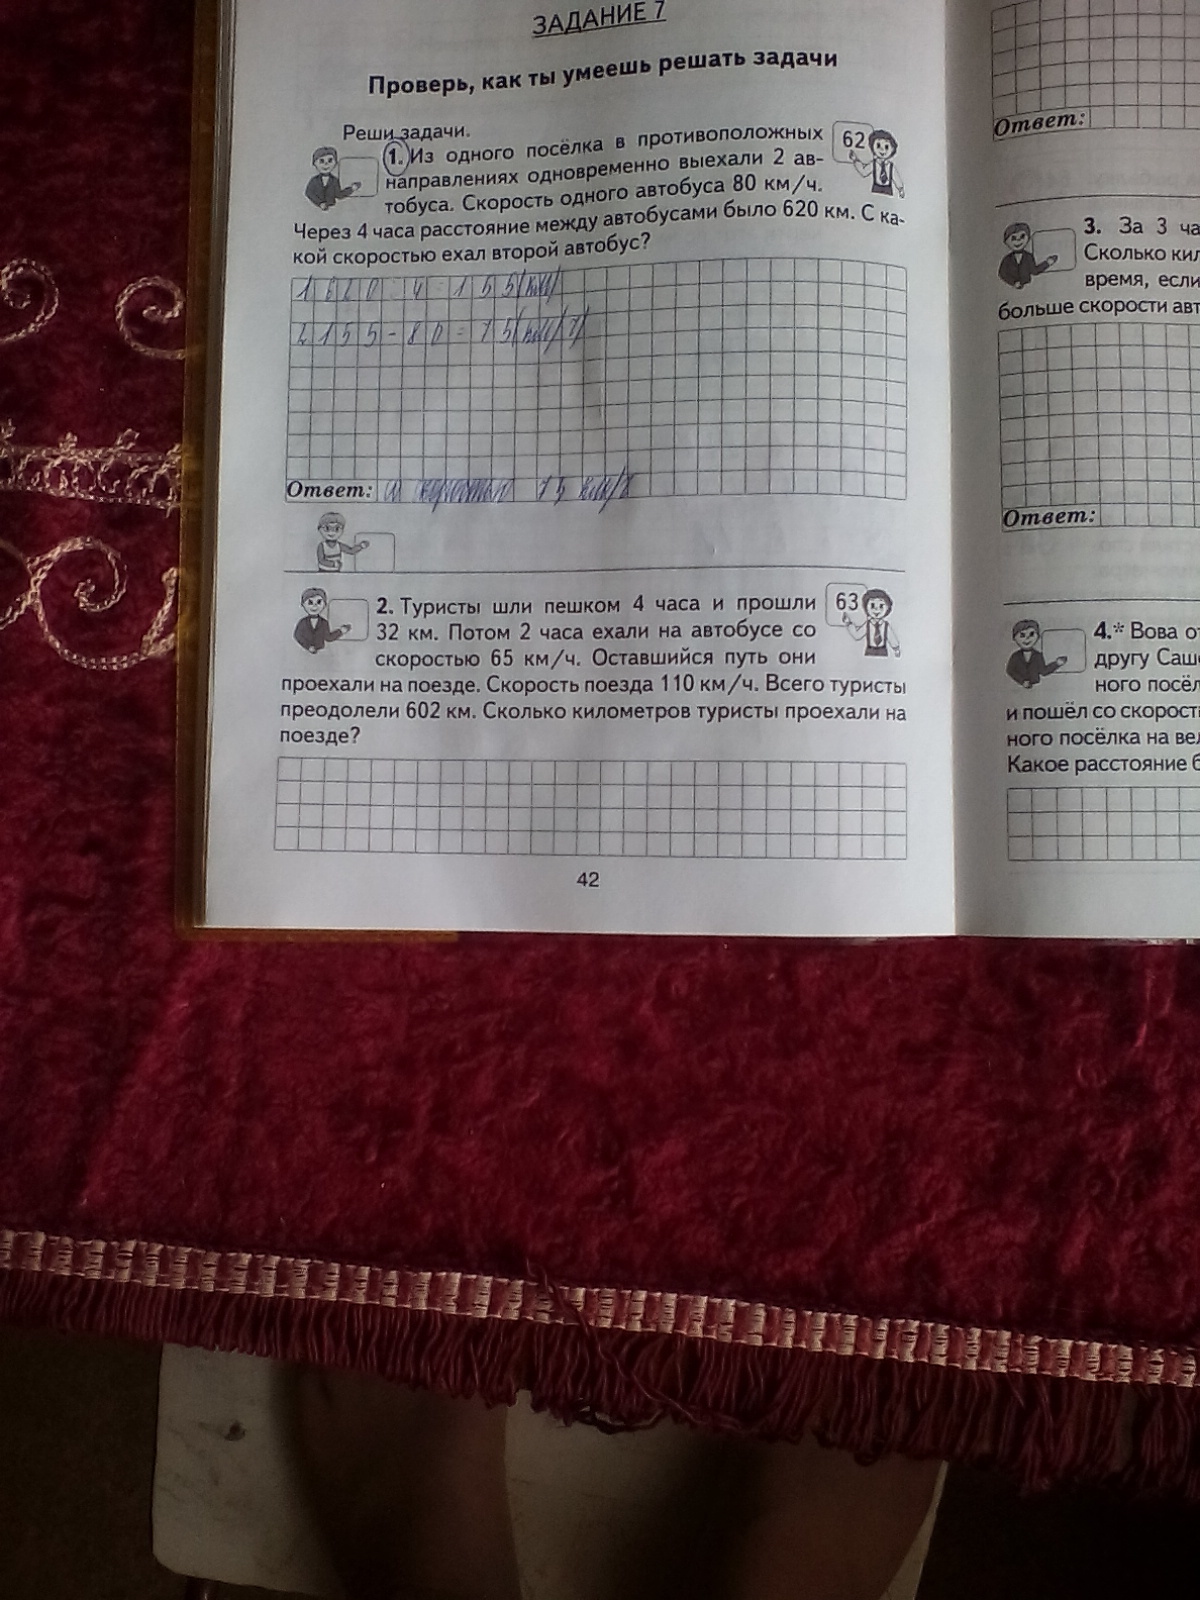 ЗАДАНИЕ 7
Проверь, как ты умеешь решать задачи
Реши задачи.
1. Из одного посёлка в противоположных
направлениях одновременно выехали 2 ав-
тобуса. Скорость одного автобуса 80 км/ч.
Через 4 часа расстояние между автобусами было 620 км. С ка-
кой скоростью ехал второй автобус?
62
1 620 : 4 = 155(км)
2 155 - 80 = 75(км/ч)
Ответ: с скоростью 75 км/ч
2. Туристы шли пешком 4 часа и прошли
32 км. Потом 2 часа ехали на автобусе со
скоростью 65 км/ч. Оставшийся путь они
проехали на поезде. Скорость поезда 110 км/ч. Всего туристы
преодолели 602 км. Сколько километров туристы проехали на
поезде?
63
42
Ответ:
3. За 3 ча
Сколько кил
время, если
больше скорости авт
Ответ:
4.* Вова от
другу Саше
ного посёл
и пошёл со скорост
ного посёлка на вел
Какое расстояние б